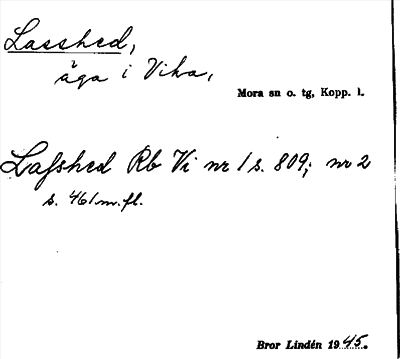 Lasshed,
äga i Vika,
Mora sn o. tg, Kopp. l.
Lafshed Rb Vi nr 1 s. 809; nr 2
s. 461 m. fl.
Bror Lindén 1945.